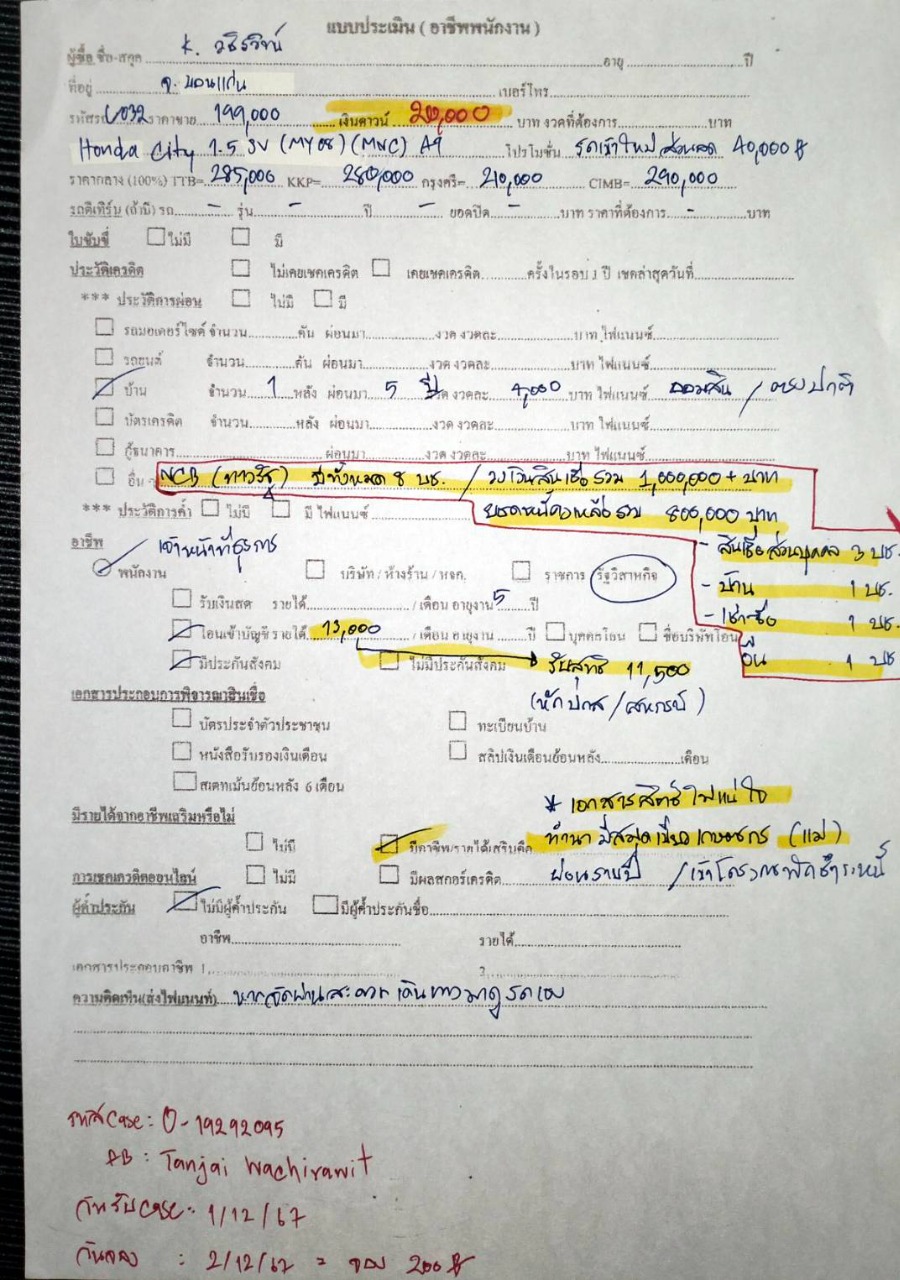 แบบประเมิน ( อาชีพพนักงาน )
ผู้ซื้อ ชื่อ-สกุล K. วชิรวิทย์ อายุ ปี
ที่อยู่ จ. ขอนแก่น เบอร์โทร
รหัสรถ U032 ราคาขาย 199,000 เงินดาวน์ 20,000 บาท งวดที่ต้องการ บาท
Honda City 1.5 SV (MY08) (MNC) A9 โปรโมชั่น รถเข้าใหม่ ส่วนลด 40,000 ฿
ราคากลาง (100%) TTB= 285,000 KKP= 280,000 กรุงศรี= 210,000 CIMB= 290,000
รถตีเทิร์น (ถ้ามี) รถ - รุ่น - ปี - ยอดปิด - บาท ราคาที่ต้องการ - บาท
ใบขับขี่ ไม่มี มี
ประวัติเครดิต ไม่เคยเชคเครดิต เคยเชคเครดิต ครั้งในรอบ 1 ปี เชคล่าสุดวันที่
*** ประวัติการผ่อน ไม่มี มี
รถมอเตอร์ไซค์ จำนวน คัน ผ่อนมา งวด งวดละ บาท ไฟแนนซ์
รถยนต์ จำนวน คัน ผ่อนมา งวด งวดละ บาท ไฟแนนซ์
บ้าน จำนวน 1 หลัง ผ่อนมา 5 ปี งวด งวดละ 4,000 บาท ไฟแนนซ์ ออมสิน / ตรงปกติ
บัตรเครดิต จำนวน หลัง ผ่อนมา งวด งวดละ บาท ไฟแนนซ์
กู้ธนาคาร ผ่อนมา งวด งวดละ บาท ไฟแนนซ์
อื่น NCB (ทางรัฐ) มีทั้งหมด 8 บช. / วงเงินสินเชื่อรวม 1,000,000+ บาท
*** ประวัติการค้ำ ไม่มี มี ไฟแนนซ์ ยอดหนี้คงเหลือรวม 800,000 บาท
อาชีพ เจ้าหน้าที่ธุรการ - สินเชื่อส่วนบุคคล 3 บช.
พนักงาน บริษัท / ห้างร้าน / หจก. ราชการ รัฐวิสาหกิจ - บ้าน 1 บช.
รับเงินสด รายได้ / เดือน อายุงาน 5 ปี - เช่าซื้อ 1 บช.
โอนเข้าบัญชี รายได้ 13,000 / เดือน อายุงาน ปี บุคคลโอน ชื่อบริษัทโอน
มีประกันสังคม ไม่มีประกันสังคม รับสุทธิ 11,500 อื่น 1 บช
เอกสารประกอบการพิจารณาสินเชื่อ (หัก ปกส/สหกรณ์)
บัตรประจำตัวประชาชน ทะเบียนบ้าน
หนังสือรับรองเงินเดือน สลิปเงินเดือนย้อนหลัง เดือน
สเตทเม้นย้อนหลัง 6 เดือน
* เอกสารสิทธิ์
มีรายได้จากอาชีพเสริมหรือไม่
ไม่มี มีอาชีพ/รายได้เสริมคือ ทำนา มีสมุดเขียวเกษตรกร (แม่)
การเชคเครดิตออนไลน์ ไม่มี มีผลสกอร์เครดิต ผ่อนรายปี / เข้าโครงการพักชำระหนี้
ผู้ค้ำประกัน ไม่มีผู้ค้ำประกัน มีผู้ค้ำประกันชื่อ
อาชีพ รายได้
เอกสารประกอบอาชีพ 1. 2.
ความคิดเห็น(ส่งไฟแนนท์) หากจัดผ่านสะดวกเดินทางมาดูรถเอง
รหัสCase : O-19292095
FB : Tanjai Wachirawit
วันรับCase : 1/12/67
วันจอง : 2/12/67 = จอง 200฿